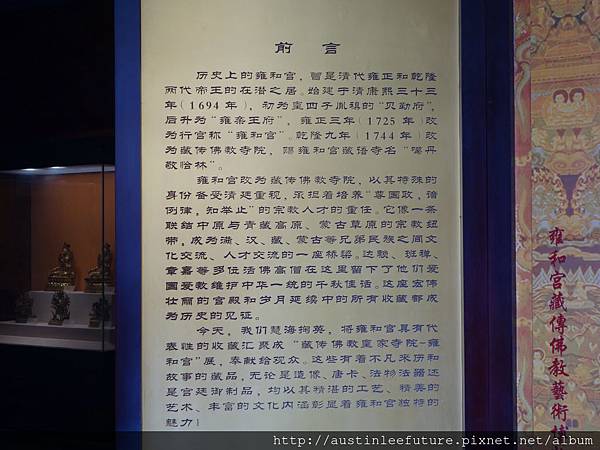 前 言
历史上的雍和宫，曾是清代雍正和乾隆
两代帝王的在潜之居。始建于清康熙三十三
年（1694 年），初为皇四子胤禛的“贝勒府”，
后升为“雍亲王府”，雍正三年（1725 年）改
为行宫称“雍和宫”。乾隆九年（1744 年）改
为藏传佛教寺院，赐雍和宫藏语寺名“噶丹
敬恰林”。
雍和宫改为藏传佛教寺院，以其特殊的
身份备受清廷重视，承担着培养“尊国政，谙
例律，知举止”的宗教人才的重任。它像一条
联结中原与青藏高原、蒙古草原的宗教纽
带，成为满、汉、藏、蒙古等兄弟民族之间文
化交流、人才交流的一座桥梁。达赖、班禅、
章嘉等多位活佛高僧在这里留下了他们爱
国爱教维护中华一统的千秋佳话。这座宏伟
壮丽的宫殿和岁月延续中的所有收藏都成
为历史的见证。
今天，我们慧海掬英，将雍和宫具有代
表性的收藏汇聚成“藏传佛教皇家寺院-雍
和宫”展，奉献给观众。这些有着不凡来历和
故事的藏品，无论是造像、唐卡、法物法器还
是宫廷御制品，均以其精湛的工艺、精美的
艺术、丰富的文化内涵彰显着雍和宫独特的
魅力！
雍和宮藏傳佛教藝術
http://austinleefuture.pixnet.net/album